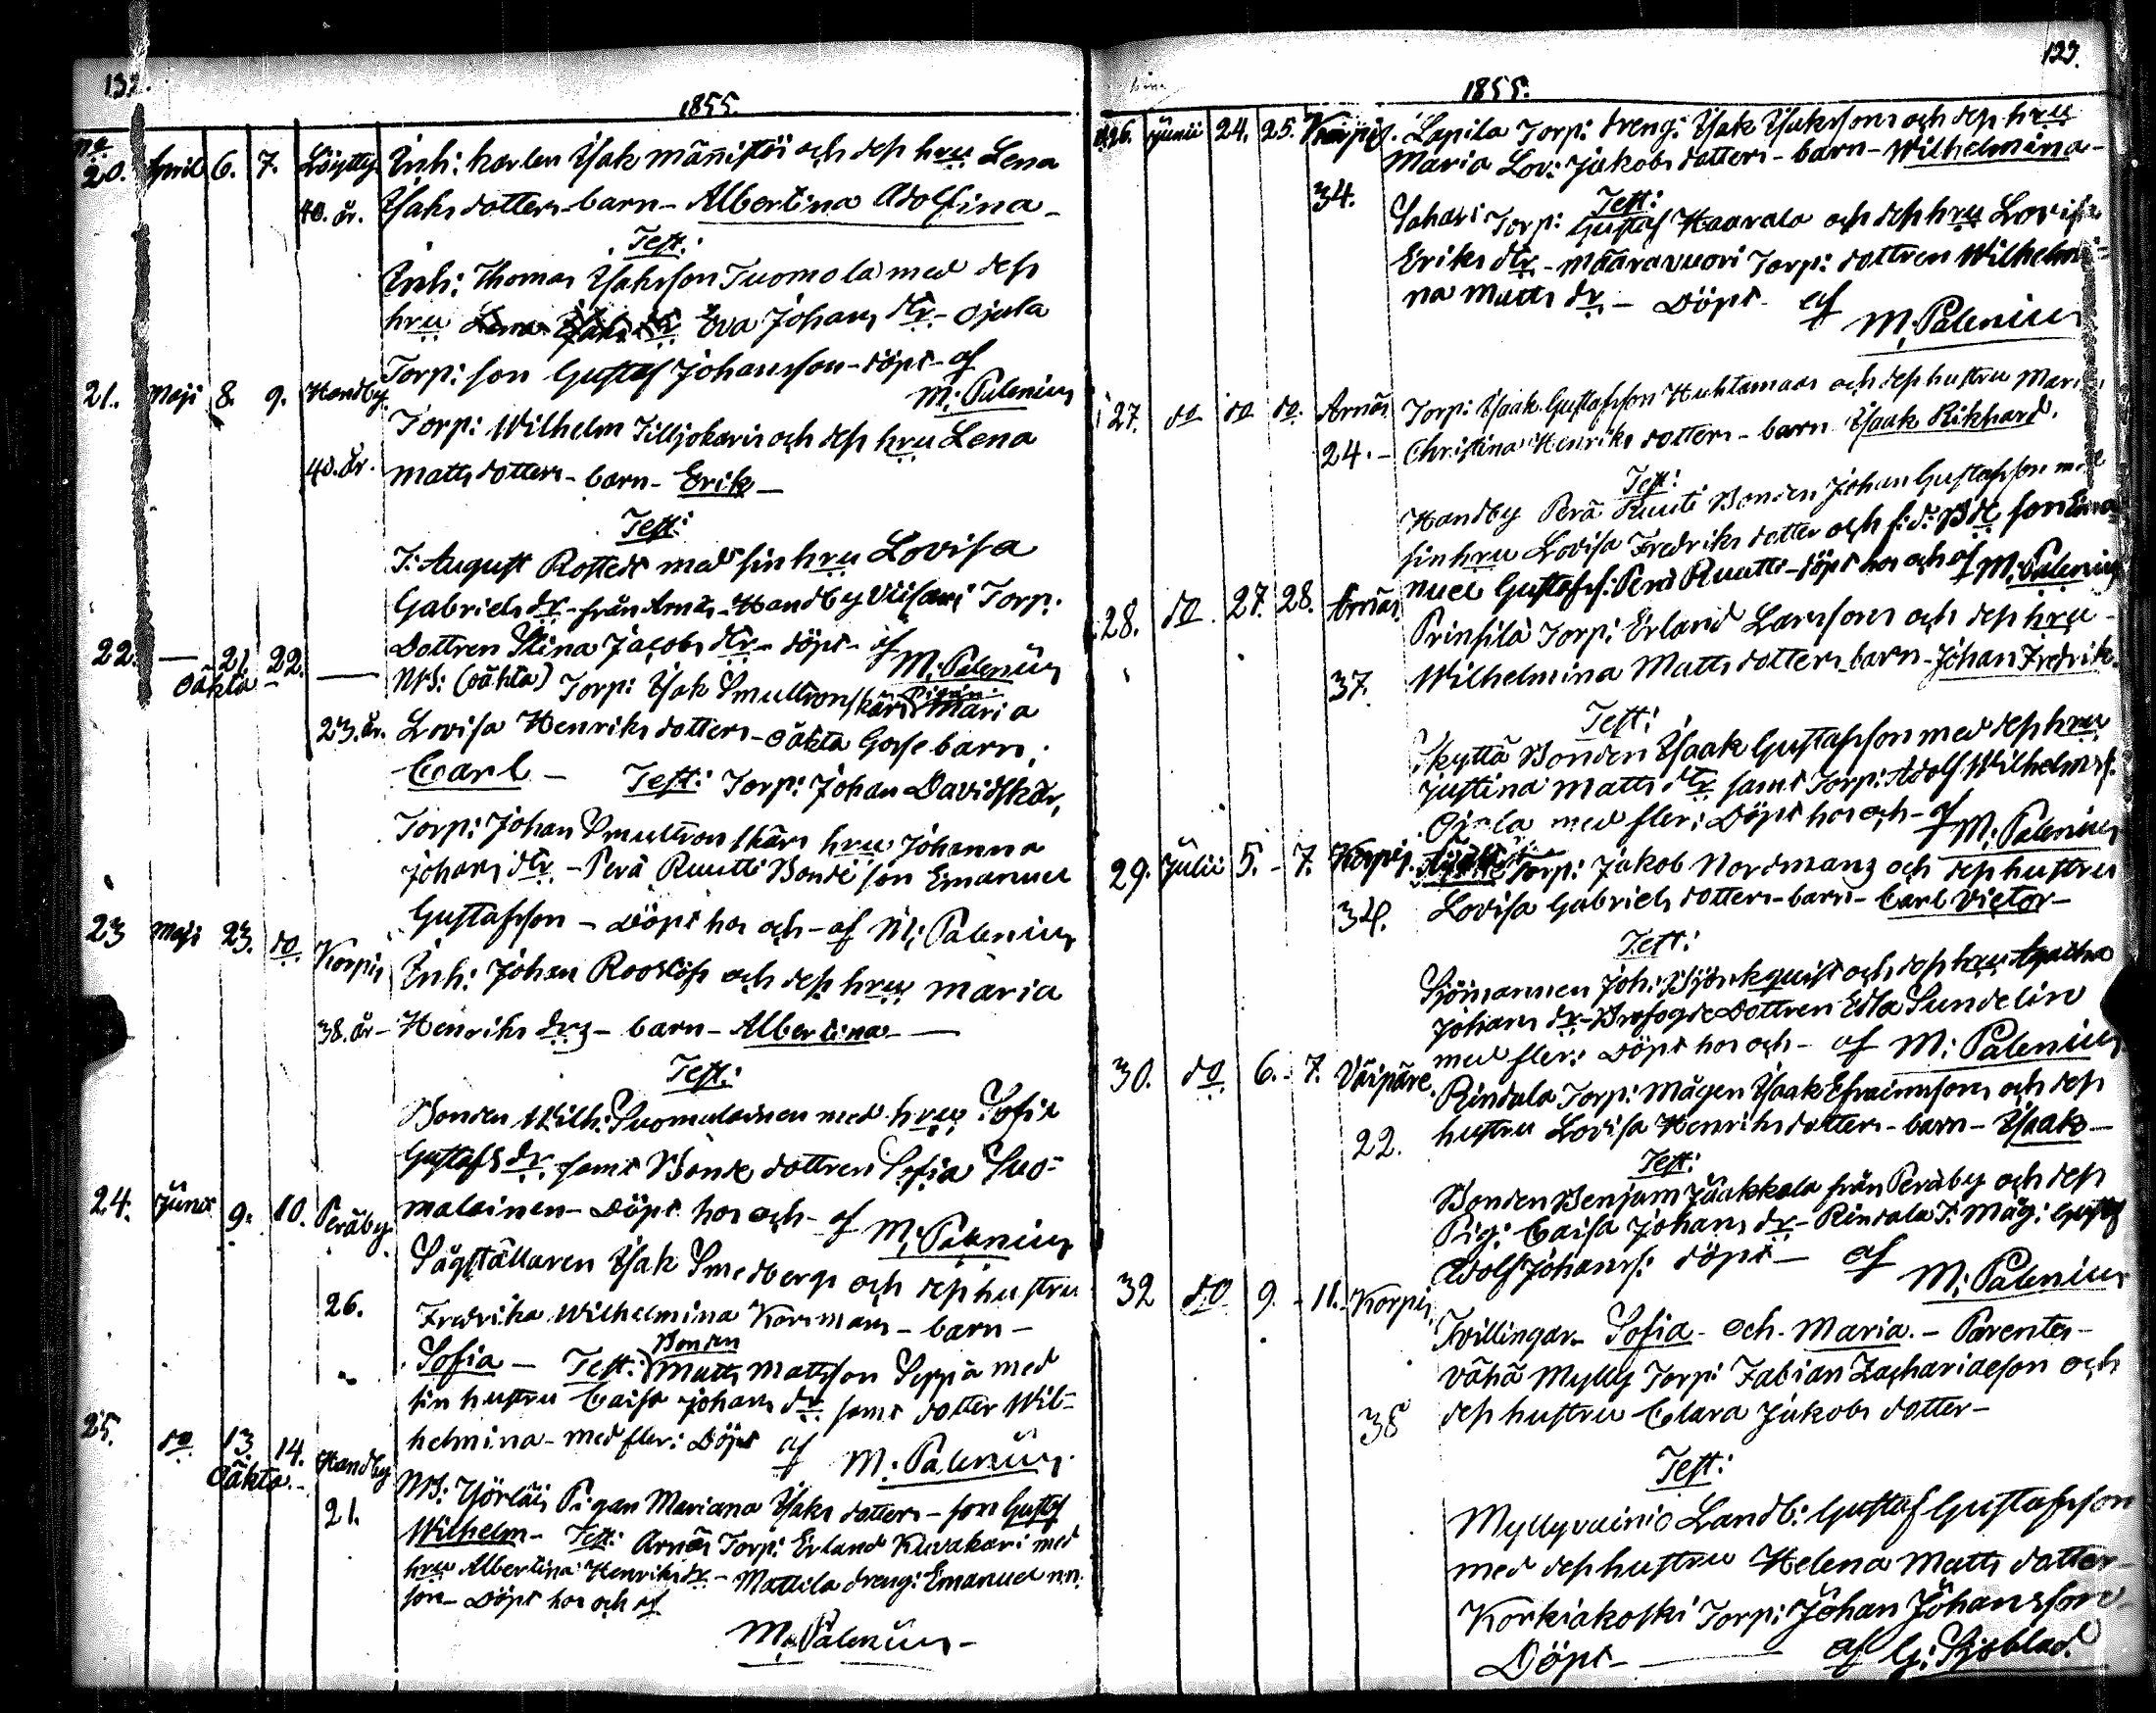 132.
1855.
No
20. April 6. 7. Löytty Inh: karlen Isak Männistöi och dess hru Lena
40. år. Isaks dotters - barn - Albertina Adolfina -
Test:
Inh: Thomas Isaksson Tuomola med dess
hru Eva Johans dtr. - Ojala
Torp: son Gustaf Johansson - döpt - af
M: Palenius
21. Maji 8. 9. Handby Torp: Wilhelm Tilljokaris och dess hru Lena
40. år. Matts dotters - barn - Erik -
Test:
J: August Rostedt med sin hru Lovisa
Gabriels dr. - från Arnäs - Handby Viisari Torp:
Dottren Stina Jacobs dtr. - döpt - af
M: Palenius
22. — 21. 22. — NB: (oäkta) Torp: Isak Smultronskärs Pigan Maria
oäkta
23. år. Lovisa Henriks dotters - oäkta Gosse barn;
Carl - Test: Torp: Johan Davidskär,
Torp: Johan Smultronskärs hru Johanna
Johans dtr. - Perä Ruutti Bonde son Emanuel
Gustafsson - Döpt hos och - af M: Palenius
23 Maji 23. do. Korpis Inh: Johan Roos och dess hru Maria
38. år - Henriks drs - barn - Albertina -
Test:
Bonden Wilh: Suomalainen med hru Sofia
Gustafs dr. samt Bonde dottren Sofia Suo-
malainen - Döpt hos och - af M: Palenius
24. Junii 9. 10. Peräby Sågställaren Isak Smedbergs och dess hustru
26. Fredrika Wilhelmina Korsmans - barn -
Sofia - Test: Bonden Matts Mattsson Seppä med
sin hustru Caisa Johans dr. samt dotter Wil-
helmina - med fler: Döpt af M: Palenius
25. do. 13. 14. Handby NB: Yörläis Pigan Mariana Isaks dotters - son Gustaf
oäkta.
21. Wilhelm - Test: Arnäs Torp: Erland Kuvakari med
hru Albertina Henriks dr. - Mattila dreng: Emanuel n.n.
son - Döpt hos och af
M: Palenius -
123.
1855.
26. Junii 24. 25. Korpis. Lapila Torp: dreng: Isak Isakssons och dess hru
Maria Lov: Jakobs dotters - barn - Wilhelmina -
34. Test:
Sahari Torp: Gustaf Haarala och dess hru Lovisa
Eriks dtr. - Määrävuori Torp: dottren Wilhelmi-
na Matts dr. - Döpt - af
M: Palenius
27. do do do. Arnäs Torp: Isaak Gustafsson Huhtamaas och dess hustru Maria
24. - Christina Henriks dotters - barn Isaak Rikhard.
Test:
Handby Perä Ruuti Bonden Johan Gustafsson med
sin hru Lovisa Fredriks dotter och f.d: Bde son Ema-
nuel Gustafss: Perä Ruutti - döpt hos och af M: Palenius
28. do. 27. 28. Arnäs Prinsilä Torp: Erland Larssons och dess hru -
37. Wilhelmina Matts dotters barn - Johan Fredrik.
Test:
Skyttä Bonden Isaak Gustafsson med dess hru
Justina Matts dtr samt Torp: Adolf Wilhelmss:
Ojala med fler: Döpt hos och - af M: Palenius
29. Julii 5. - 7. Korpis. Torp: Jakob Nordmans och dess hustru
34. Lovisa Gabriels dotters - barn - Carl Victor -
Test:
Sjömannen Joh: Björkquist och dess hru Agatha
Johans dr - Brofogde Dottren Edla Sundelin
med fler: Döpt hos och - af M: Palenius
30. do 6. - 7. Väipäre. Rindala Torp: Mågen Isaak Efraimssons och dess
22. hustru Lovisa Henriks dotters - barn - Isaak -
Test:
Bonden Benjam Jaakkola från Peräby och dess
Pig: Caisa Johans dr - Rindala T: Måg: Gustaf
Adolf Johanss: döpt - af
M: Palenius
32 do 9. - 11. Korpis. Tvillingar - Sofia - och - Maria. - Parentes -
Vähä Mylly Torp: Fabian Zachariaeson och
38 dess hustru Clara Jakobs dotter -
Test:
Myllyvainio Landb: Gustaf Gustafsson
med dess hustru Helena Matts dotter -
Korkiakoski Torp: Johan Johansson -
Döpt - af G: Sjöblad.